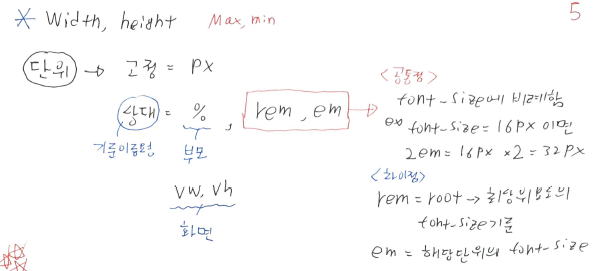 * Width, height Max, min 5
단위 → 고정 = px
상대 = %, rem, em →
기준이 필요
부모
vw, vh
화면
<공통점>
font-size에 비례함
ex font-size = 16px 이면
2em = 16px × 2 = 32px
<차이점>
rem = root → 최상위요소의
font-size기준
em = 해당단위의 font-size